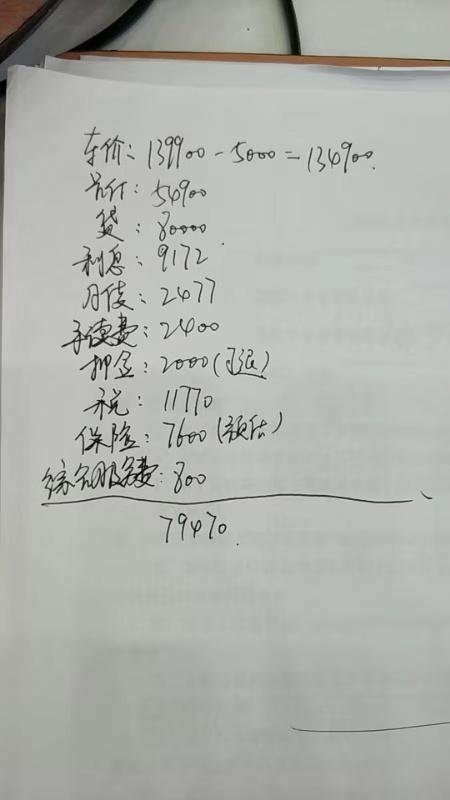 车价：139900-5000=134900.
首付：54900
贷：80000.
利息：9172
月供：2477
手续费：2400
押金：2000(可退)
税：11770
保险：7600(预估)
综合服务费：800
79470.